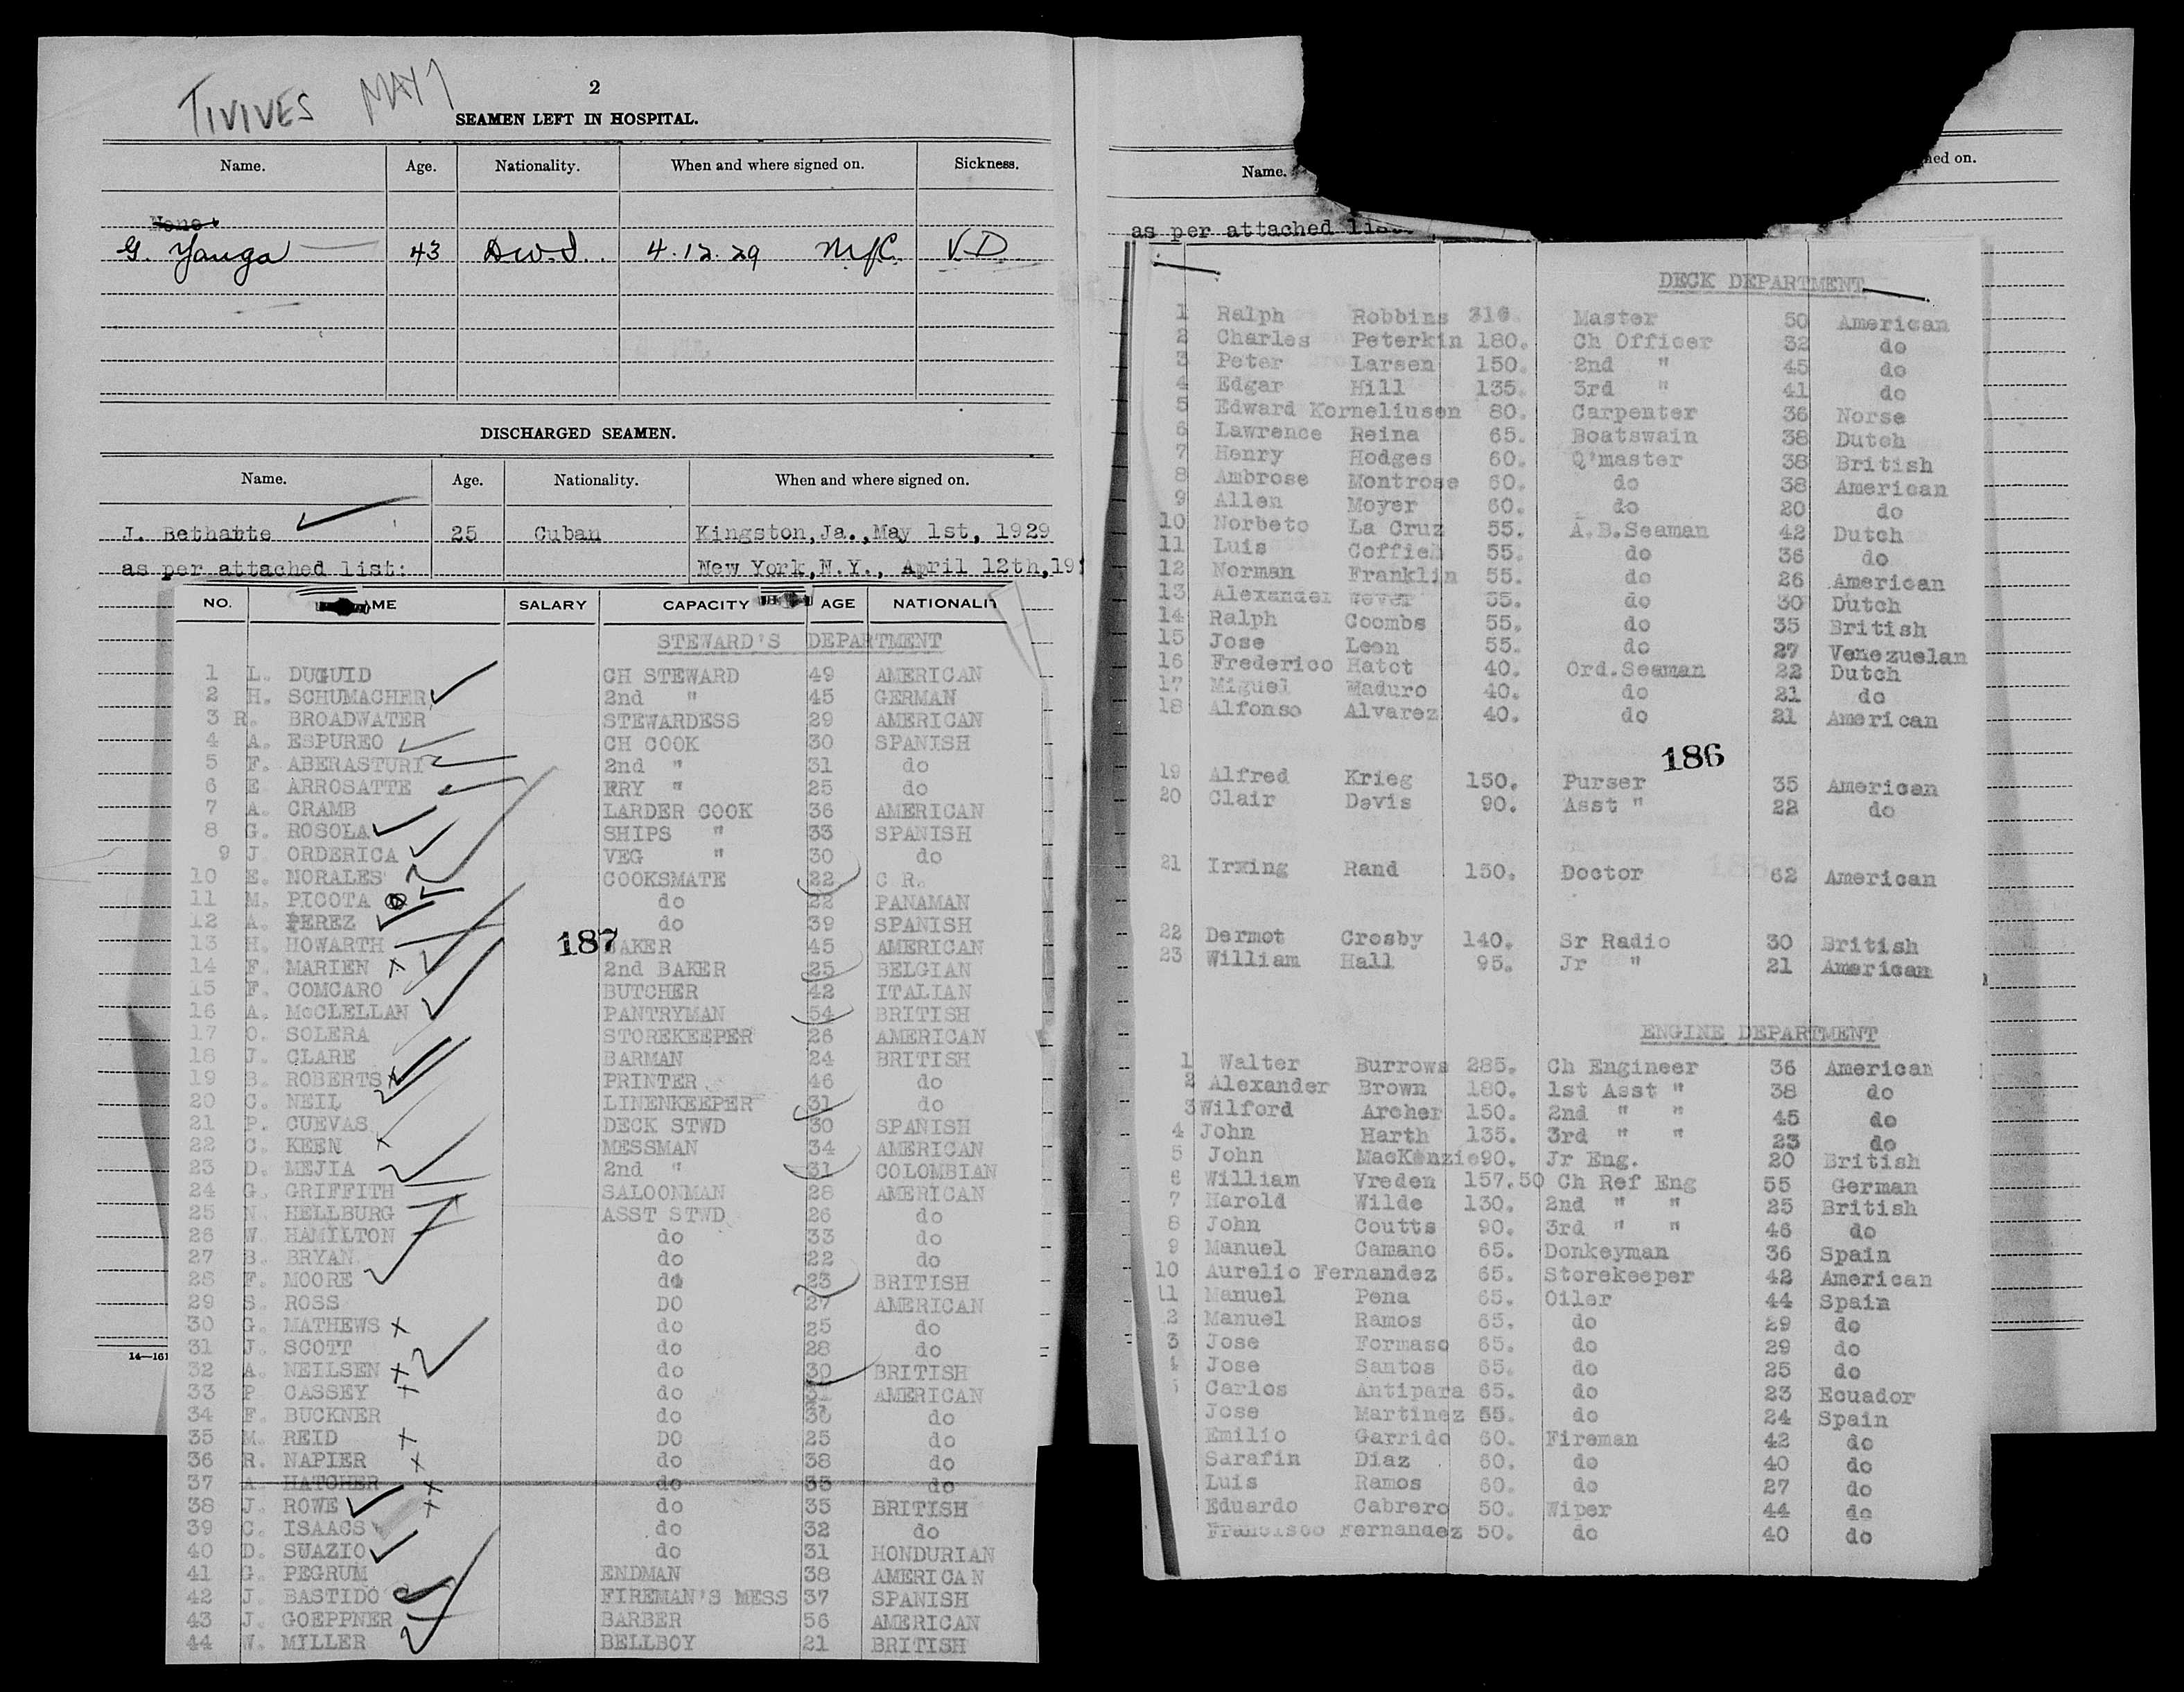 TIVIVES MAY 7
2
SEAMEN LEFT IN HOSPITAL.
Name. Age. Nationality. When and where signed on. Sickness.
None
G. Yanga 43 D.W.I. 4.12.29 N.Y. V.D
DISCHARGED SEAMEN.
Name. Age. Nationality. When and where signed on.
J. Betharte 25 Cuban Kingston,Ja.,May 1st, 1929
as per attached list: New York,N.Y., April 12th,19
NO. AME SALARY CAPACITY AGE NATIONALIT
STEWARD'S DEPARTMENT
1 L. DUGUID CH STEWARD 49 AMERICAN
2 H. SCHUMACHER 2nd " 45 GERMAN
3 R. BROADWATER STEWARDESS 29 AMERICAN
4 A. ESPUREO CH COOK 30 SPANISH
5 F. ABERASTURI 2nd " 31 do
6 E. ARROSATTE FRY " 25 do
7 A. CRAMB LARDER COOK 36 AMERICAN
8 G. ROSOLA SHIPS " 33 SPANISH
9 J. ORDERICA VEG " 30 do
10 E. NORALES COOKSMATE 22 C R.
11 M. PICOTA do 22 PANAMAN
12 A. PEREZ do 39 SPANISH
13 H. HOWARTH 187 BAKER 45 AMERICAN
14 F. MARIEN 2nd BAKER 25 BELGIAN
15 F. COMCARO BUTCHER 42 ITALIAN
16 A. McCLELLAN PANTRYMAN 54 BRITISH
17 O. SOLERA STOREKEEPER 26 AMERICAN
18 J. CLARE BARMAN 24 BRITISH
19 B. ROBERTS PRINTER 46 do
20 C. NEIL LINENKEEPER 31 do
21 P. CUEVAS DECK STWD 30 SPANISH
22 C. KEEN MESSMAN 34 AMERICAN
23 D. MEJIA 2nd " 31 COLOMBIAN
24 G. GRIFFITH SALOONMAN 28 AMERICAN
25 N. HELLBURG ASST STWD 26 do
26 W. HAMILTON do 33 do
27 B. BRYAN do 22 do
28 F. MOORE do 23 BRITISH
29 S. ROSS DO 27 AMERICAN
30 G. MATHEWS do 25 do
31 J. SCOTT do 28 do
32 A. NEILSEN do 30 BRITISH
33 P CASSEY do AMERICAN
34 F. BUCKNER do 36 do
35 M. REID DO 25 do
36 R. NAPIER do 38 do
37 A. HATCHER do 33 do
38 J. ROWE do 35 BRITISH
39 C. ISAACS do 32 do
40 D. SUAZIO do 31 HONDURIAN
41 G. PEGRUM ENDMAN 38 AMERICAN
42 J. BASTIDO FIREMAN'S MESS 37 SPANISH
43 J. GOEPPNER BARBER 56 AMERICAN
44 W. MILLER BELLBOY 21 BRITISH
14—161
Name. ned on.
as per attached list.
DECK DEPARTMENT
1 Ralph Robbins 316. Master 50 American
2 Charles Peterkin 180. Ch Officer 32 do
3 Peter Larsen 150. 2nd " 45 do
4 Edgar Hill 135. 3rd " 41 do
5 Edward Korneliusen 80. Carpenter 36 Norse
6 Lawrence Reina 65. Boatswain 38 Dutch
7 Henry Hodges 60. Q'master 38 British
8 Ambrose Montrose 60. do 38 American
9 Allen Moyer 60. do 20 do
10 Norbeto La Cruz 55. A.B.Seaman 42 Dutch
11 Luis Coffieh 55. do 36 do
12 Norman Franklin 55. do 26 American
13 Alexander Wever 55. do 30 Dutch
14 Ralph Coombs 55. do 35 British
15 Jose Leon 55. do 27 Venezuelan
16 Frederico Hatot 40. Ord.Seaman 22 Dutch
17 Miguel Maduro 40. do 21 do
18 Alfonso Alvarez 40. do 21 American
186
19 Alfred Krieg 150. Purser 35 American
20 Clair Davis 90. Asst " 22 do
21 Irwing Rand 150. Doctor 62 American
22 Dermot Crosby 140. Sr Radio 30 British
23 William Hall 95. Jr " 21 American
ENGINE DEPARTMENT
1 Walter Burrows 285. Ch Engineer 36 American
2 Alexander Brown 180. 1st Asst " 38 do
3 Wilford Archer 150. 2nd " " 45 do
4 John Harth 135. 3rd " " 23 do
5 John MacKenzie 90. Jr Eng. 20 British
6 William Vreden 157.50 Ch Ref Eng 55 German
7 Harold Wilde 130. 2nd " " 25 British
8 John Coutts 90. 3rd " " 46 do
9 Manuel Camano 65. Donkeyman 36 Spain
10 Aurelio Fernandez 65. Storekeeper 42 American
11 Manuel Pena 65. Oiler 44 Spain
2 Manuel Ramos 65. do 29 do
3 Jose Formaso 65. do 29 do
4 Jose Santos 65. do 25 do
Carlos Antipara 65. do 23 Ecuador
Jose Martinez 65. do 24 Spain
Emilio Garrido 60. Fireman 42 do
Sarafin Diaz 60. do 40 do
Luis Ramos 60. do 27 do
Eduardo Cabrero 50. Wiper 44 do
Francisco Fernandez 50. do 40 do